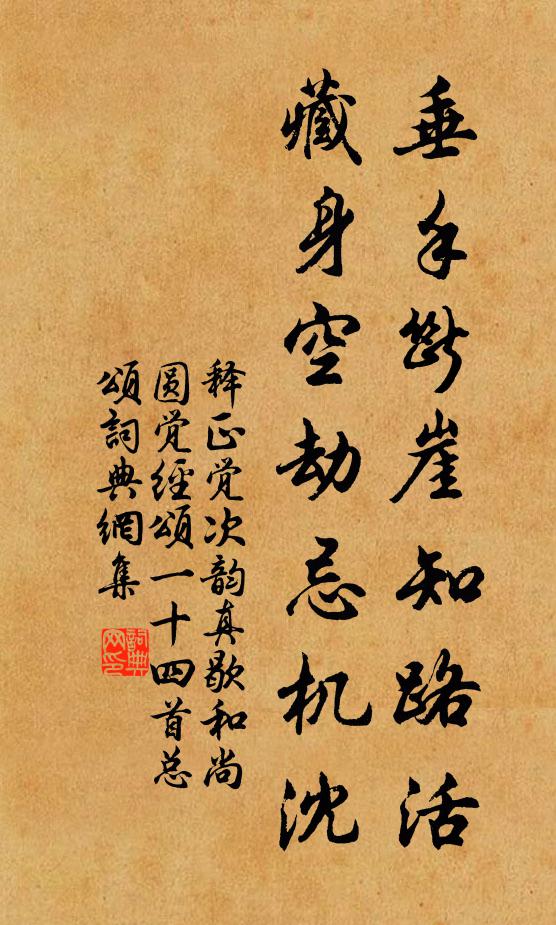 垂手断崖知路活
藏身空劫忌机沈
释正觉次韵真歇和尚
圆觉經頌一十四首总
頌詞典網集
詞典
网印